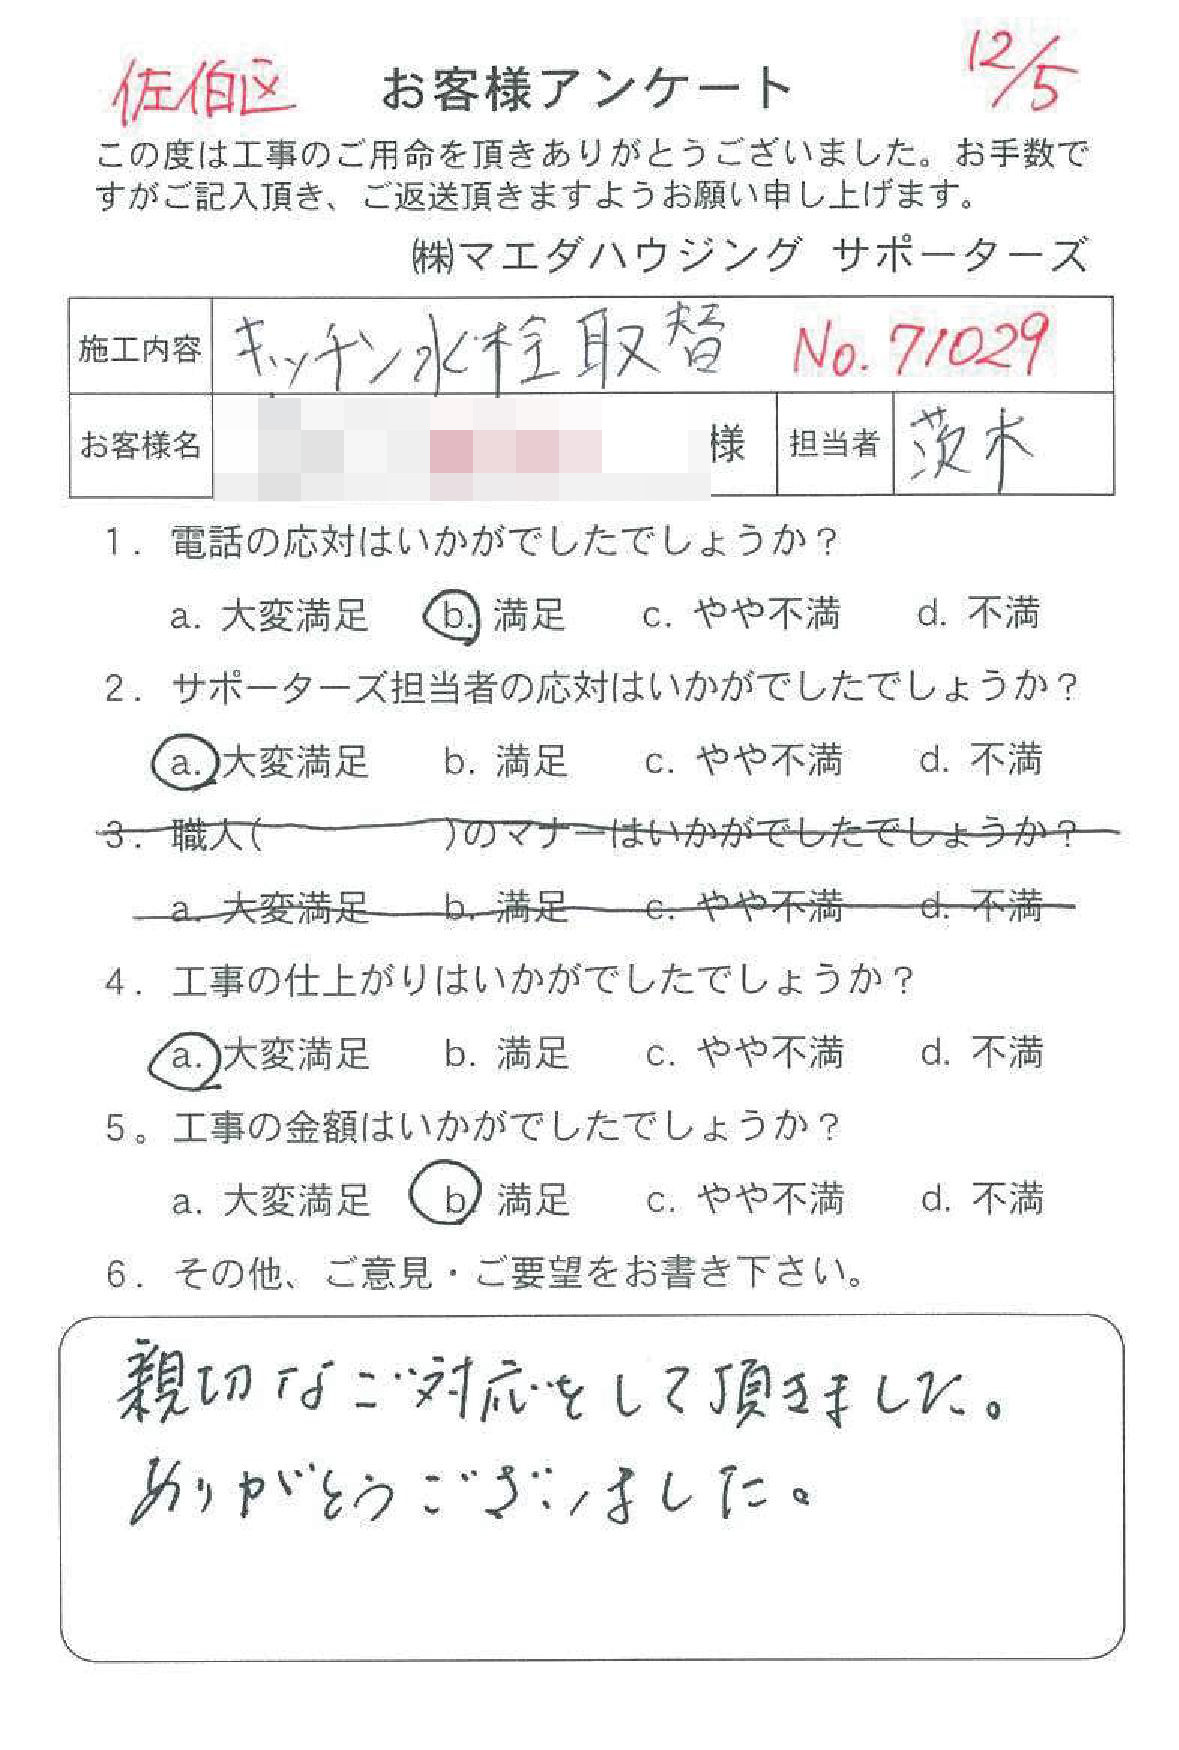 佐伯区 お客様アンケート 12/5
この度は工事のご用命を頂きありがとうございました。お手数で
すがご記入頂き、ご返送頂きますようお願い申し上げます。
㈱マエダハウジング サポーターズ
施工内容 キッチン水栓取替 No.71029
お客様名 様 担当者 茨木
1. 電話の応対はいかがでしたでしょうか?
a. 大変満足 b. 満足 c. やや不満 d. 不満
2. サポーターズ担当者の応対はいかがでしたでしょうか?
a. 大変満足 b. 満足 c. やや不満 d. 不満
3. 職人( )のマナーはいかがでしたでしょうか?
a. 大変満足 b. 満足 c. やや不満 d. 不満
4. 工事の仕上がりはいかがでしたでしょうか?
a. 大変満足 b. 満足 c. やや不満 d. 不満
5。工事の金額はいかがでしたでしょうか?
a. 大変満足 b 満足 c. やや不満 d. 不満
6. その他、ご意見・ご要望をお書き下さい。
親切なご対応をして頂きました。
ありがとうございました。